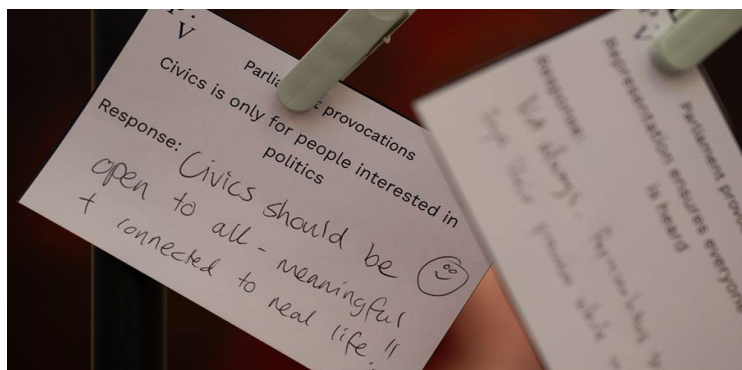 P.
V
Parlia t provocations
Civics is only for people interested in
politics
Response: Civics should be
open to all - meaningful
+ connected to real life!!
P.
V
Parliament provo
Representation ensures everyone
is heard
Response:
Not always.